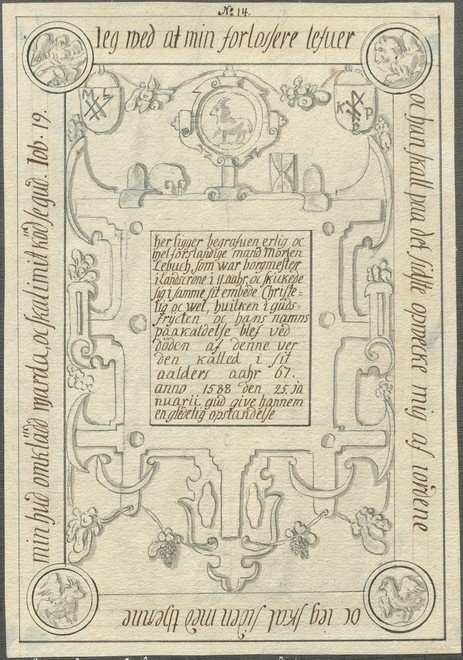 No 14.
Ieg wed at min forlossere lefuer
oc hun skall paa det sidste opwecke mig af iordene
oc ieg skal siden med thenne
min hud omkläd warda, oc skal i mit kiöd se gud. Iob. 19.
M L
K P
B
her ligger begrafuen erlig oc
wel forstandige mand Morten
Lebuch, som war borgmester
i Landscrone i 11 aahr, oc skickede
sig i samme sit embede Christe-
lig oc wel, huilken i guds
frycten oc hans namns
paakaldelse blef ved
döden af denne ver
den kalled i sit
aalders aahr 67.
anno 1588 den 25. ja
nuarii. gud give hannem
en gledelig opstandelse